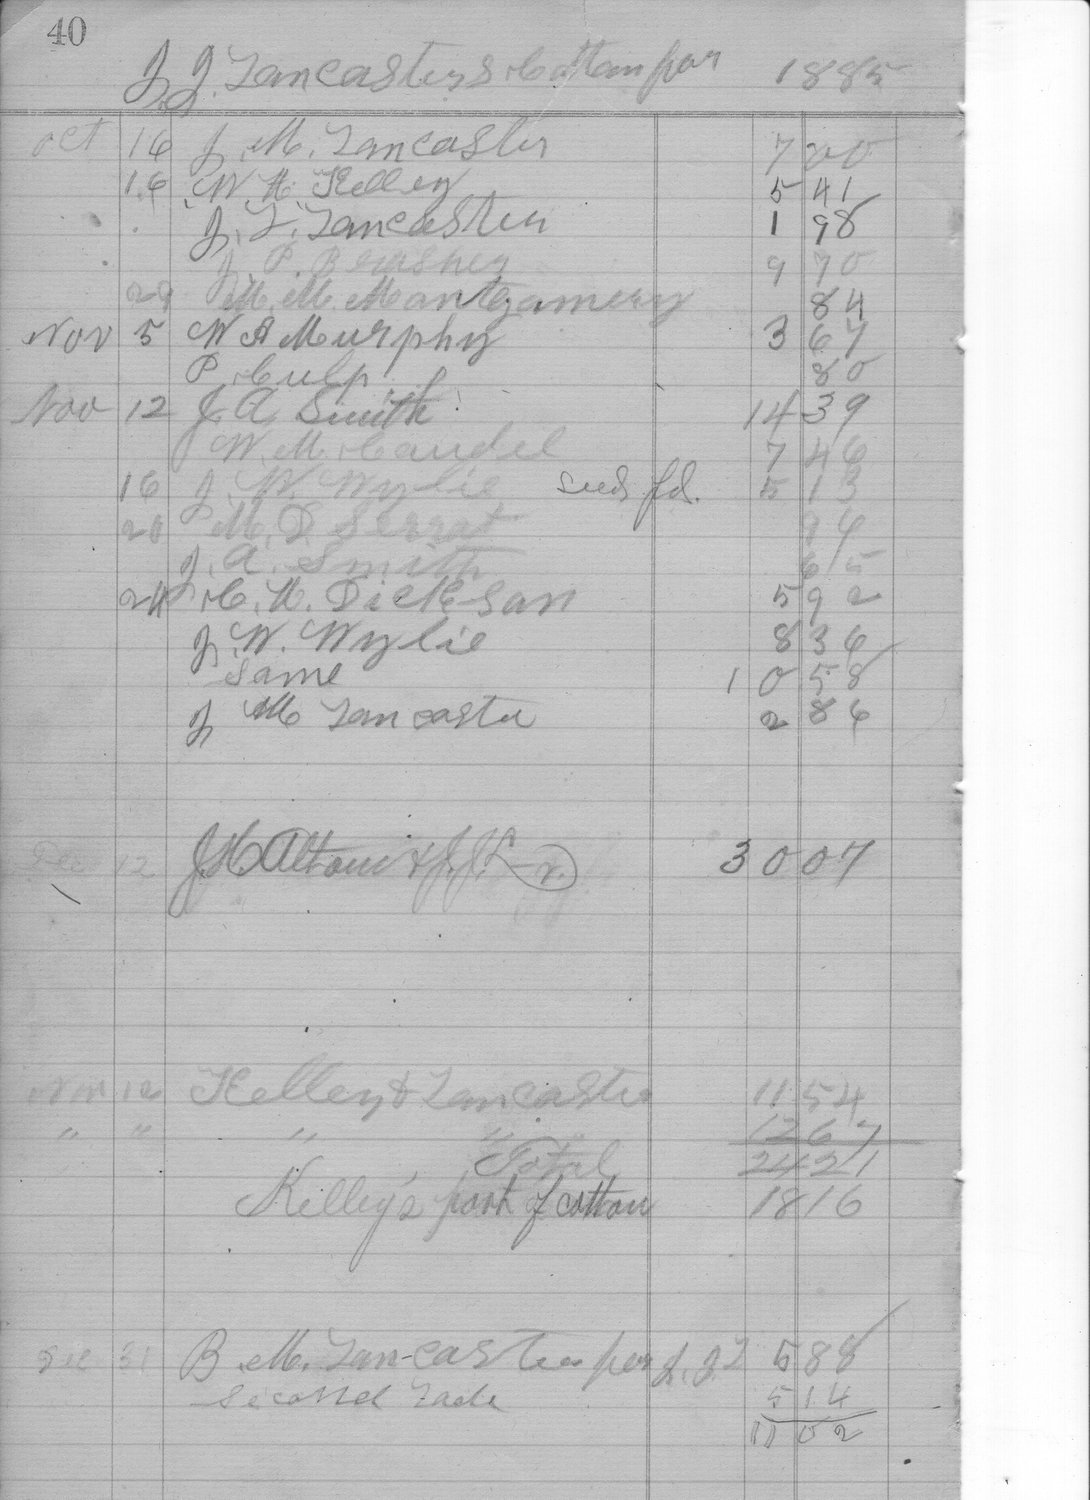 40
J. J. Lancasters Cotton for 1885
Oct 16 J. M. Lancaster 7 00
16 W H. Kelley 5 41
J. L. Lancaster 1 98
J. P. Brashey 9 70
29 M. M. Montgamery 84
Nov 5 W A Murphy 3 67
P. Culp 80
Nov 12 J A Smith 14 39
W. M. Caudel 7 46
16 J. W. Wylie seeds pd. 5 13
20 M. D Serrat 94
J. A. Smith 6 15
24 C. H. Dickson 5 92
J. W. Wylie 8 36
Same 1 0 58
J M Lancaster 2 86
Dec 12 J H Altom & J. J. L 30 07
Nov 12 Kelley & Lancaster 11 54
" " " " 12 67
Total 24 21
Kelley's part of cotton 18 16
Dec 31 B. M. Lancaster for J. J L 5 88
Second Lade 5 14
11 02